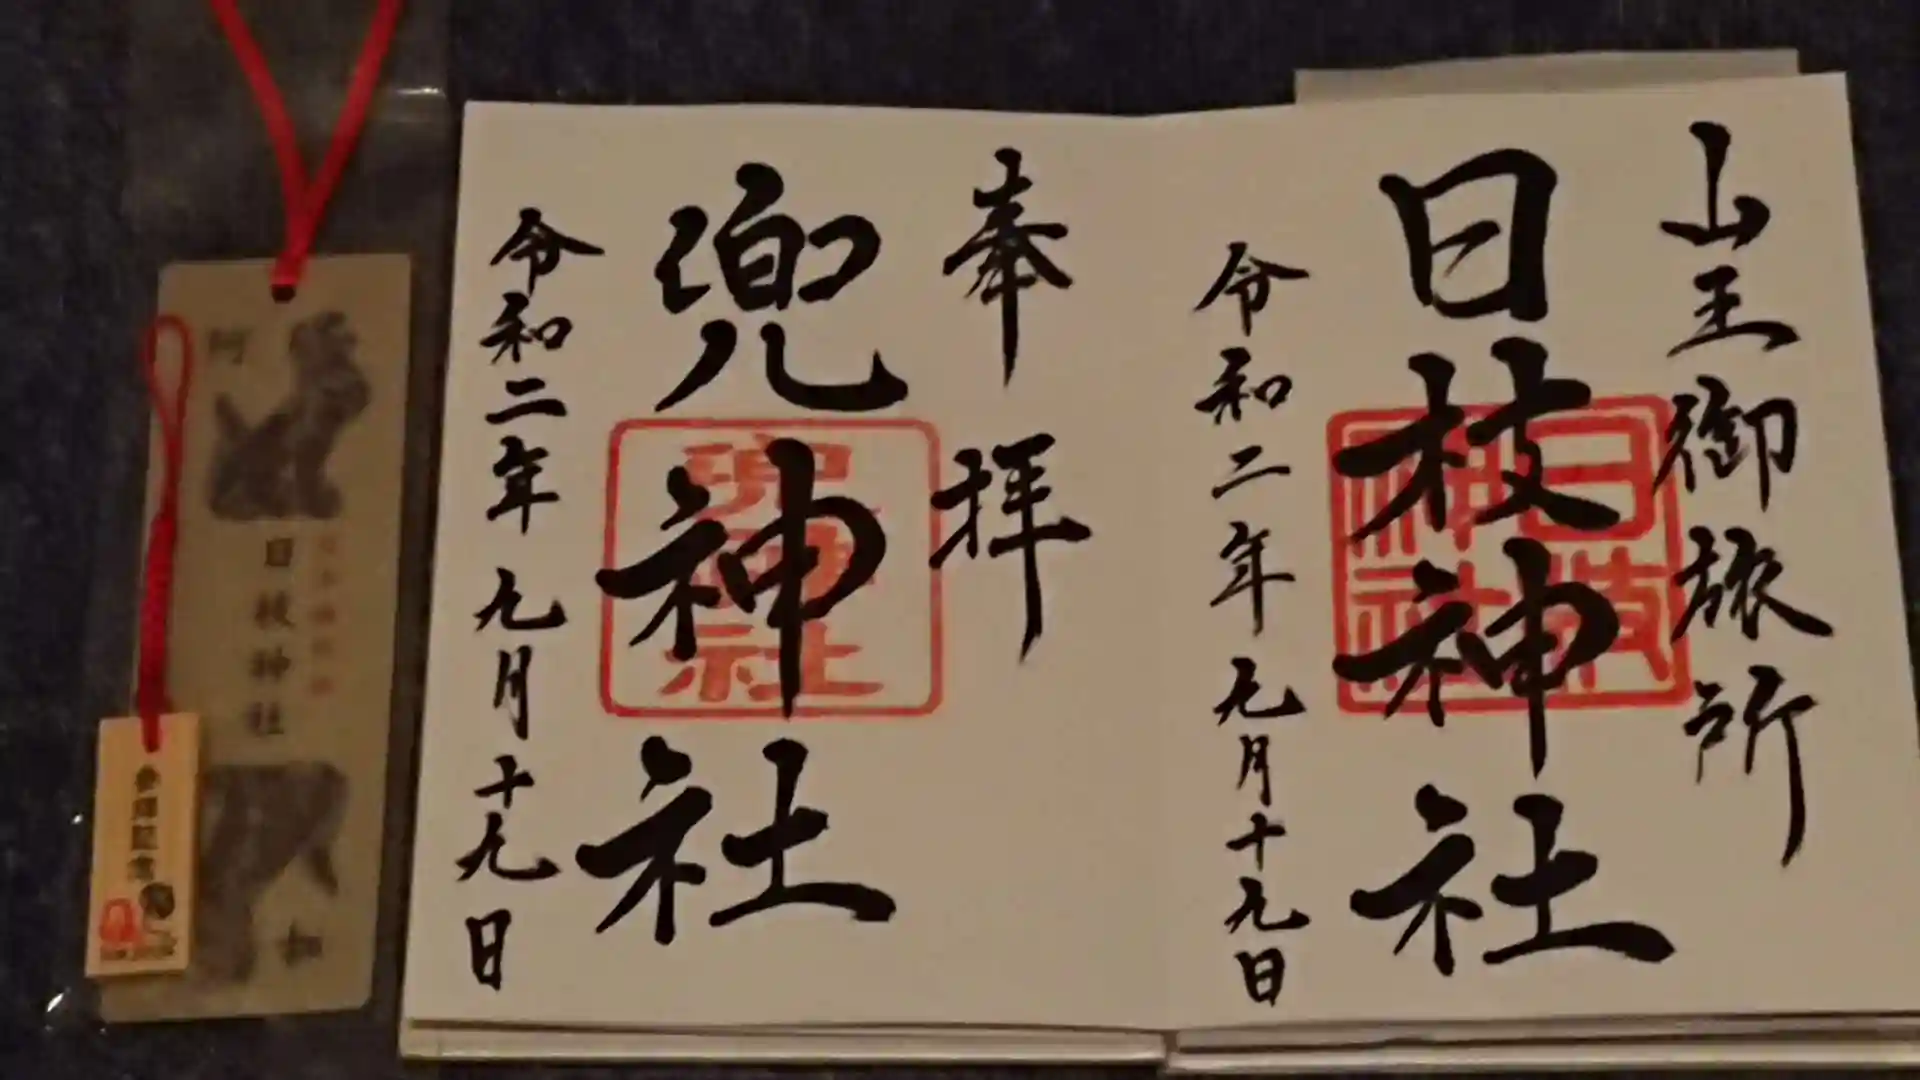 山王御旅所
日枝神社
日枝神社
令和二年九月十九日
奉拝
兜神社
兜神社
令和二年九月十九日
阿
日枝神社
参拝記念